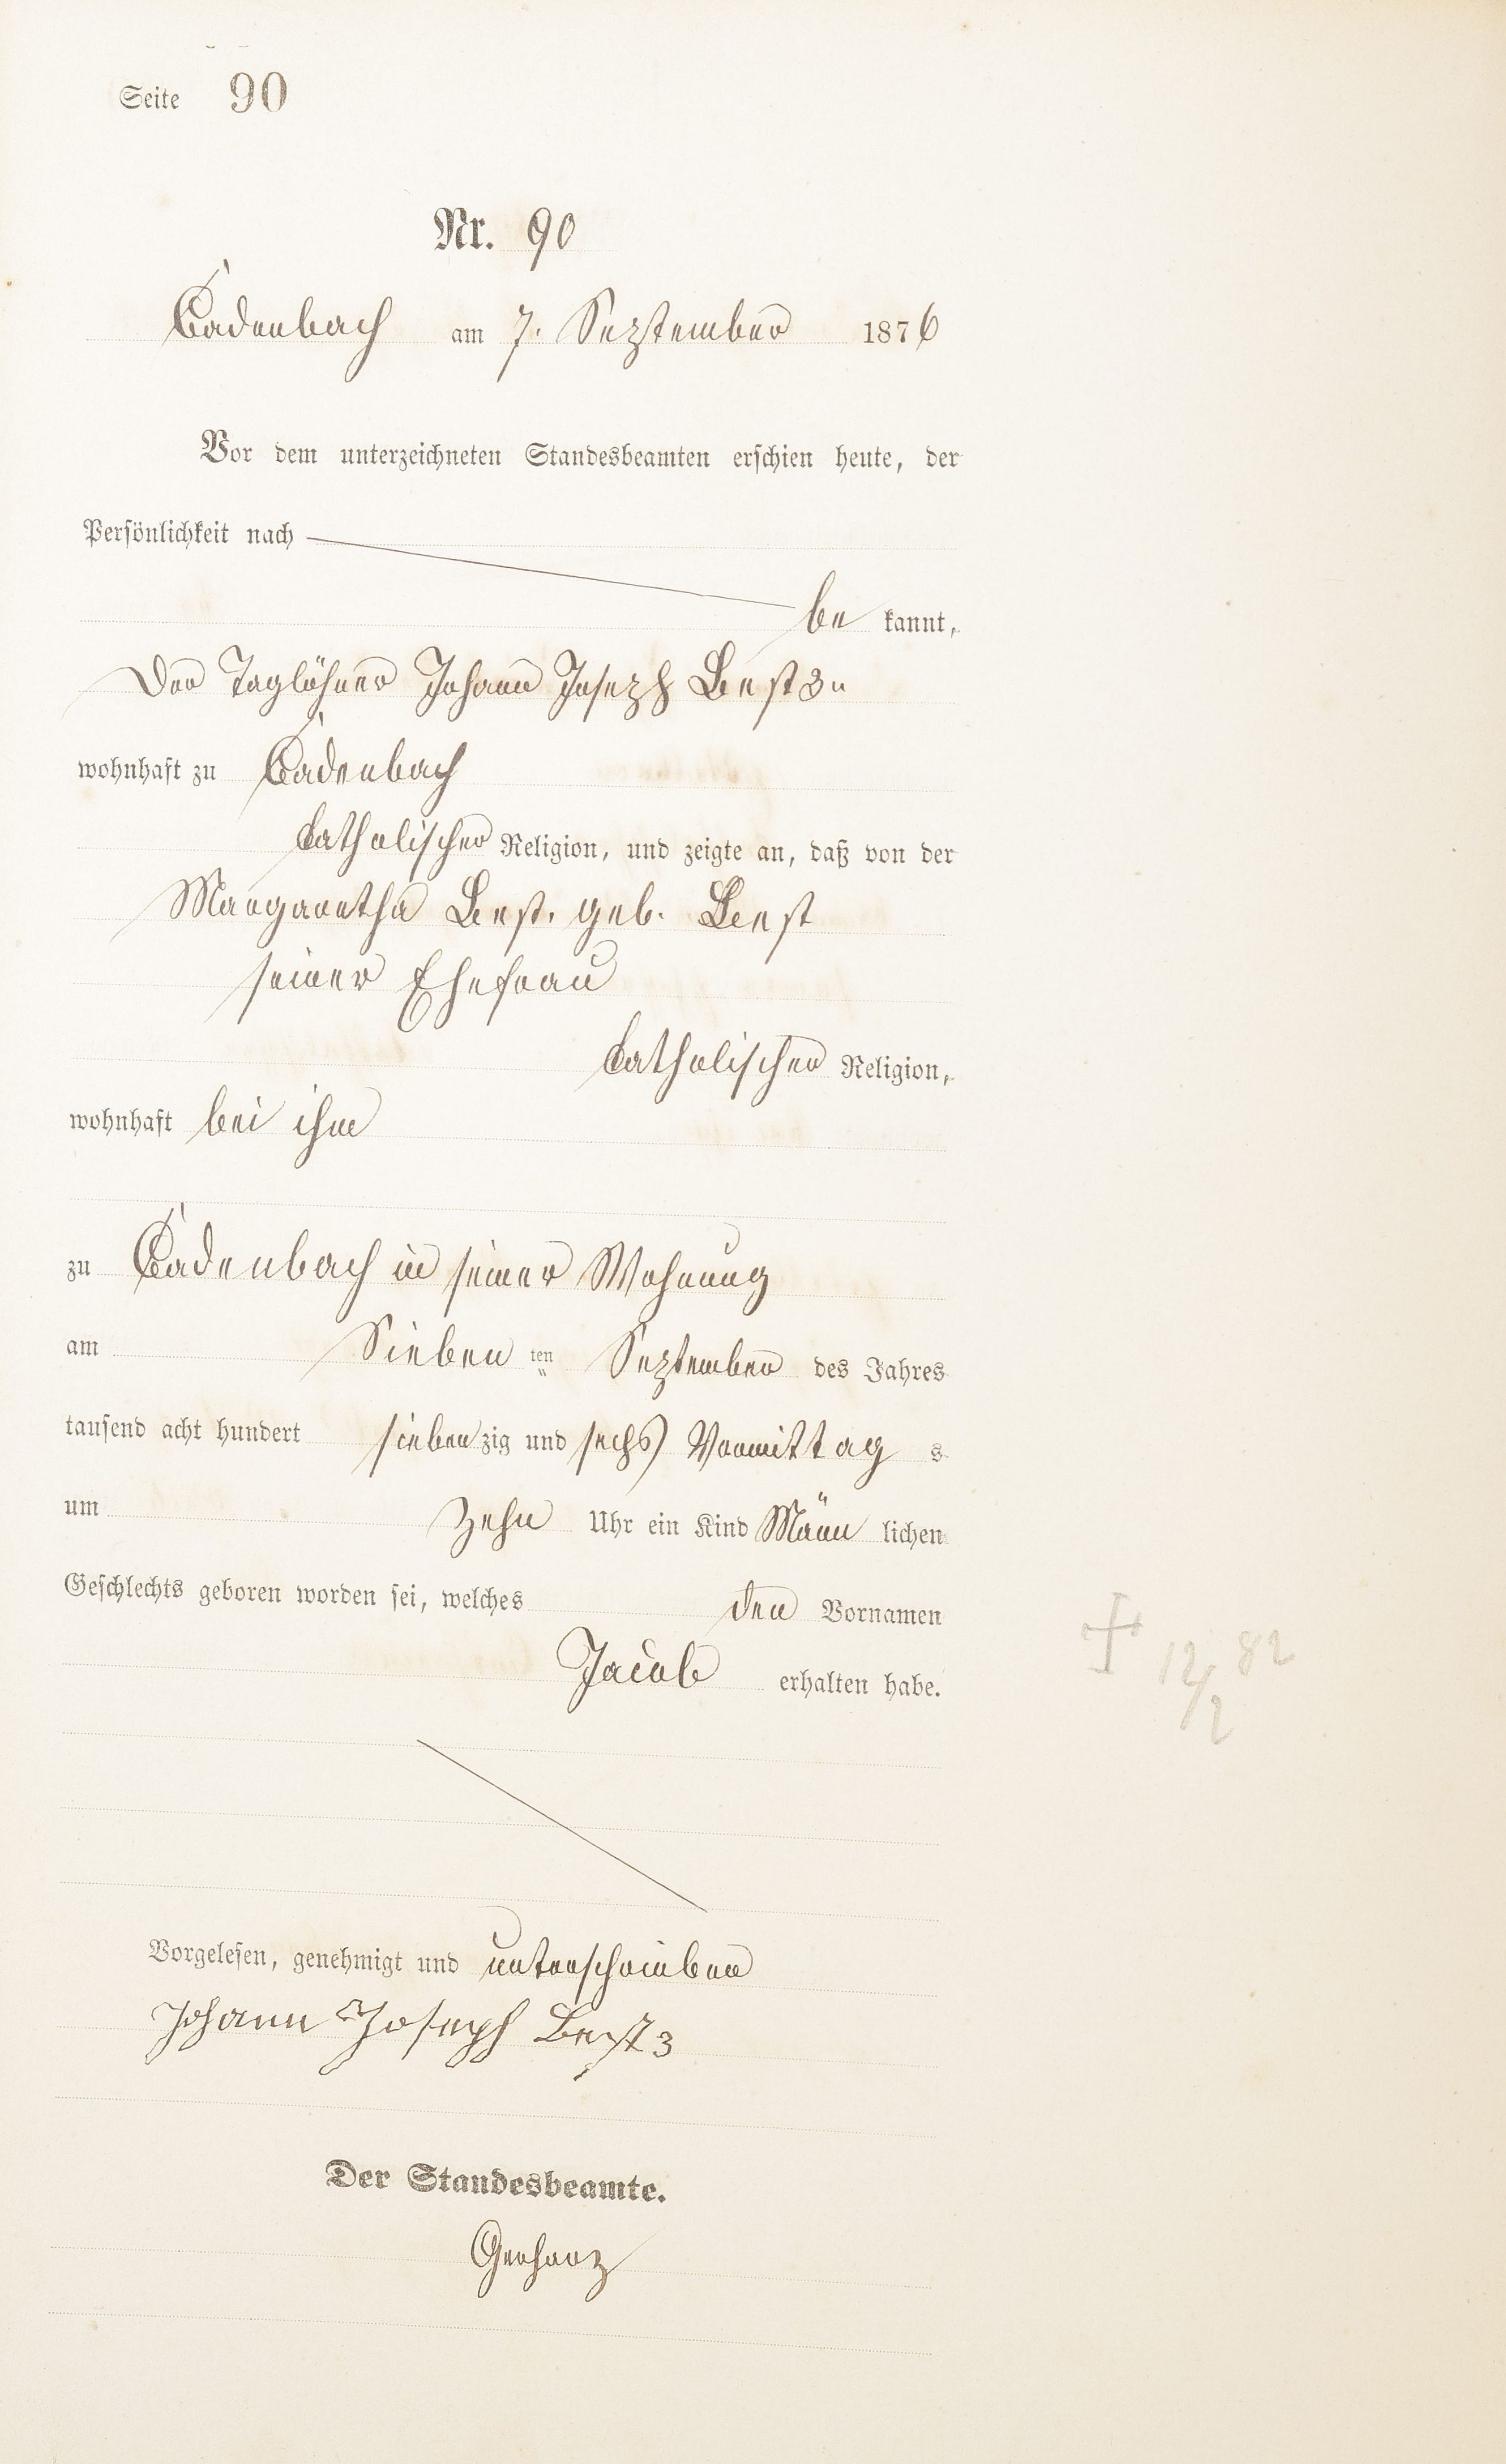 Seite 90
Nr. 90
Cadenbach am 7. September 1876
Vor dem unterzeichneten Standesbeamten erschien heute, der
Persönlichkeit nach
be kannt,
Der Taglöhner Johann Joseph Best 3n
wohnhaft zu Cadenbach
katholischer Religion, und zeigte an, daß von der
Margaretha Best, geb. Best
seiner Ehefrau
katholischer Religion,
wohnhaft bei ihm
zu Cadenbach in seiner Wohnung
am Sieben ten September des Jahres
tausend acht hundert siebenzig und sechs Vormittag s
um Zehn Uhr ein Kind Männ lichen
Geschlechts geboren worden sei, welches den Vornamen
Jacob erhalten habe.
+ 12/2 82
Vorgelesen, genehmigt und unterschrieben
Johann Joseph Best 3
Der Standesbeamte.
Gerharz